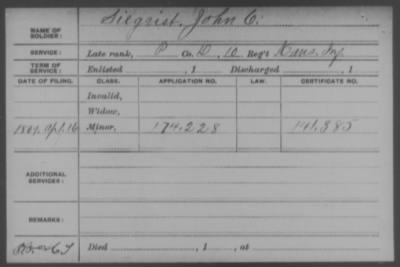 NAME OF SOLDIER: Siegrist, John C.
SERVICE: Late rank, P Co. D, 10 Reg't Kans. Inf.
TERM OF SERVICE: Enlisted , 1 Discharged , 1
DATE OF FILING. CLASS. APPLICATION NO. LAW. CERTIFICATE NO.
Invalid,
Widow,
Apl. 16 Minor, 174.228 141.385
ADDITIONAL SERVICES:
REMARKS:
Died , 1 , at